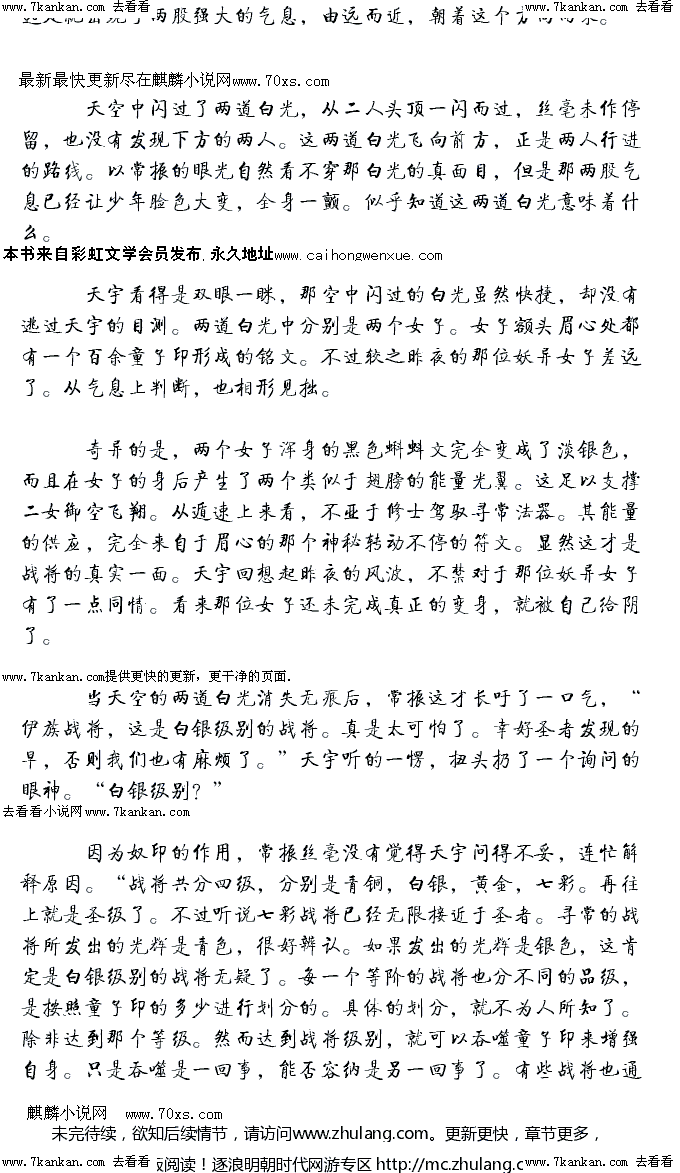 www.7kankan.com 去看看 www.7kankan.com 去看看
强大的气息，由远而近，朝着这个方向而来。
最新最快更新尽在麒麟小说网www.70xs.com
天空中闪过了两道白光，从二人头顶一闪而过，丝毫未作停
留，也没有发现下方的两人。这两道白光飞向前方，正是两人行进
的路线。以常振的眼光自然看不穿那白光的真面目，但是那两股气
息已经让少年脸色大变，全身一颤。似乎知道这两道白光意味着什
么。
本书来自彩虹文学会员发布,永久地址www.caihongwenxue.com
天宇看得是双眼一眯，那空中闪过的白光虽然快捷，却没有
逃过天宇的目测。两道白光中分别是两个女子。女子额头眉心处都
有一个百余童子印形成的铭文。不过较之昨夜的那位妖异女子差远
了。从气息上判断，也相形见拙。
奇异的是，两个女子浑身的黑色蝌蚪文完全变成了淡银色，
而且在女子的身后产生了两个类似于翅膀的能量光翼。这足以支撑
二女御空飞翔。从遁速上来看，不亚于修士驾驭寻常法器。其能量
的供应，完全来自于眉心的那个神秘转动不停的符文。显然这才是
战将的真实一面。天宇回想起昨夜的风波，不禁对于那位妖异女子
有了一点同情。看来那位女子还未完成真正的变身，就被自己给阴
了。
www.7kankan.com提供更快的更新，更干净的页面.
当天空的两道白光消失无痕后，常振这才长吁了一口气，“
伊族战将，这是白银级别的战将。真是太可怕了。幸好圣者发现的
早，否则我们也有麻烦了。”天宇听的一愣，扭头扔了一个询问的
眼神。“白银级别？”
去看看小说网www.7kankan.com
因为奴印的作用，常振丝毫没有觉得天宇问得不妥，连忙解
释原因。“战将共分四级，分别是青铜，白银，黄金，七彩。再往
上就是圣级了。不过听说七彩战将已经无限接近于圣者。寻常的战
将所发出的光辉是青色，很好辨认。如果发出的光辉是银色，这肯
定是白银级别的战将无疑了。每一个等阶的战将也分不同的品级，
是按照童子印的多少进行划分的。具体的划分，就不为人所知了。
除非达到那个等级。然而达到战将级别，就可以吞噬童子印来增强
自身。只是吞噬是一回事，能否容纳是另一回事了。有些战将也通
麒麟小说网 www.70xs.com
未完待续，欲知后续情节，请访问www.zhulang.com。更新更快，章节更多，
www.7kankan.com 去看看 阅读！逐浪明朝时代网游专区 http://mc.zhulang.c www.7kankan.com 去看看